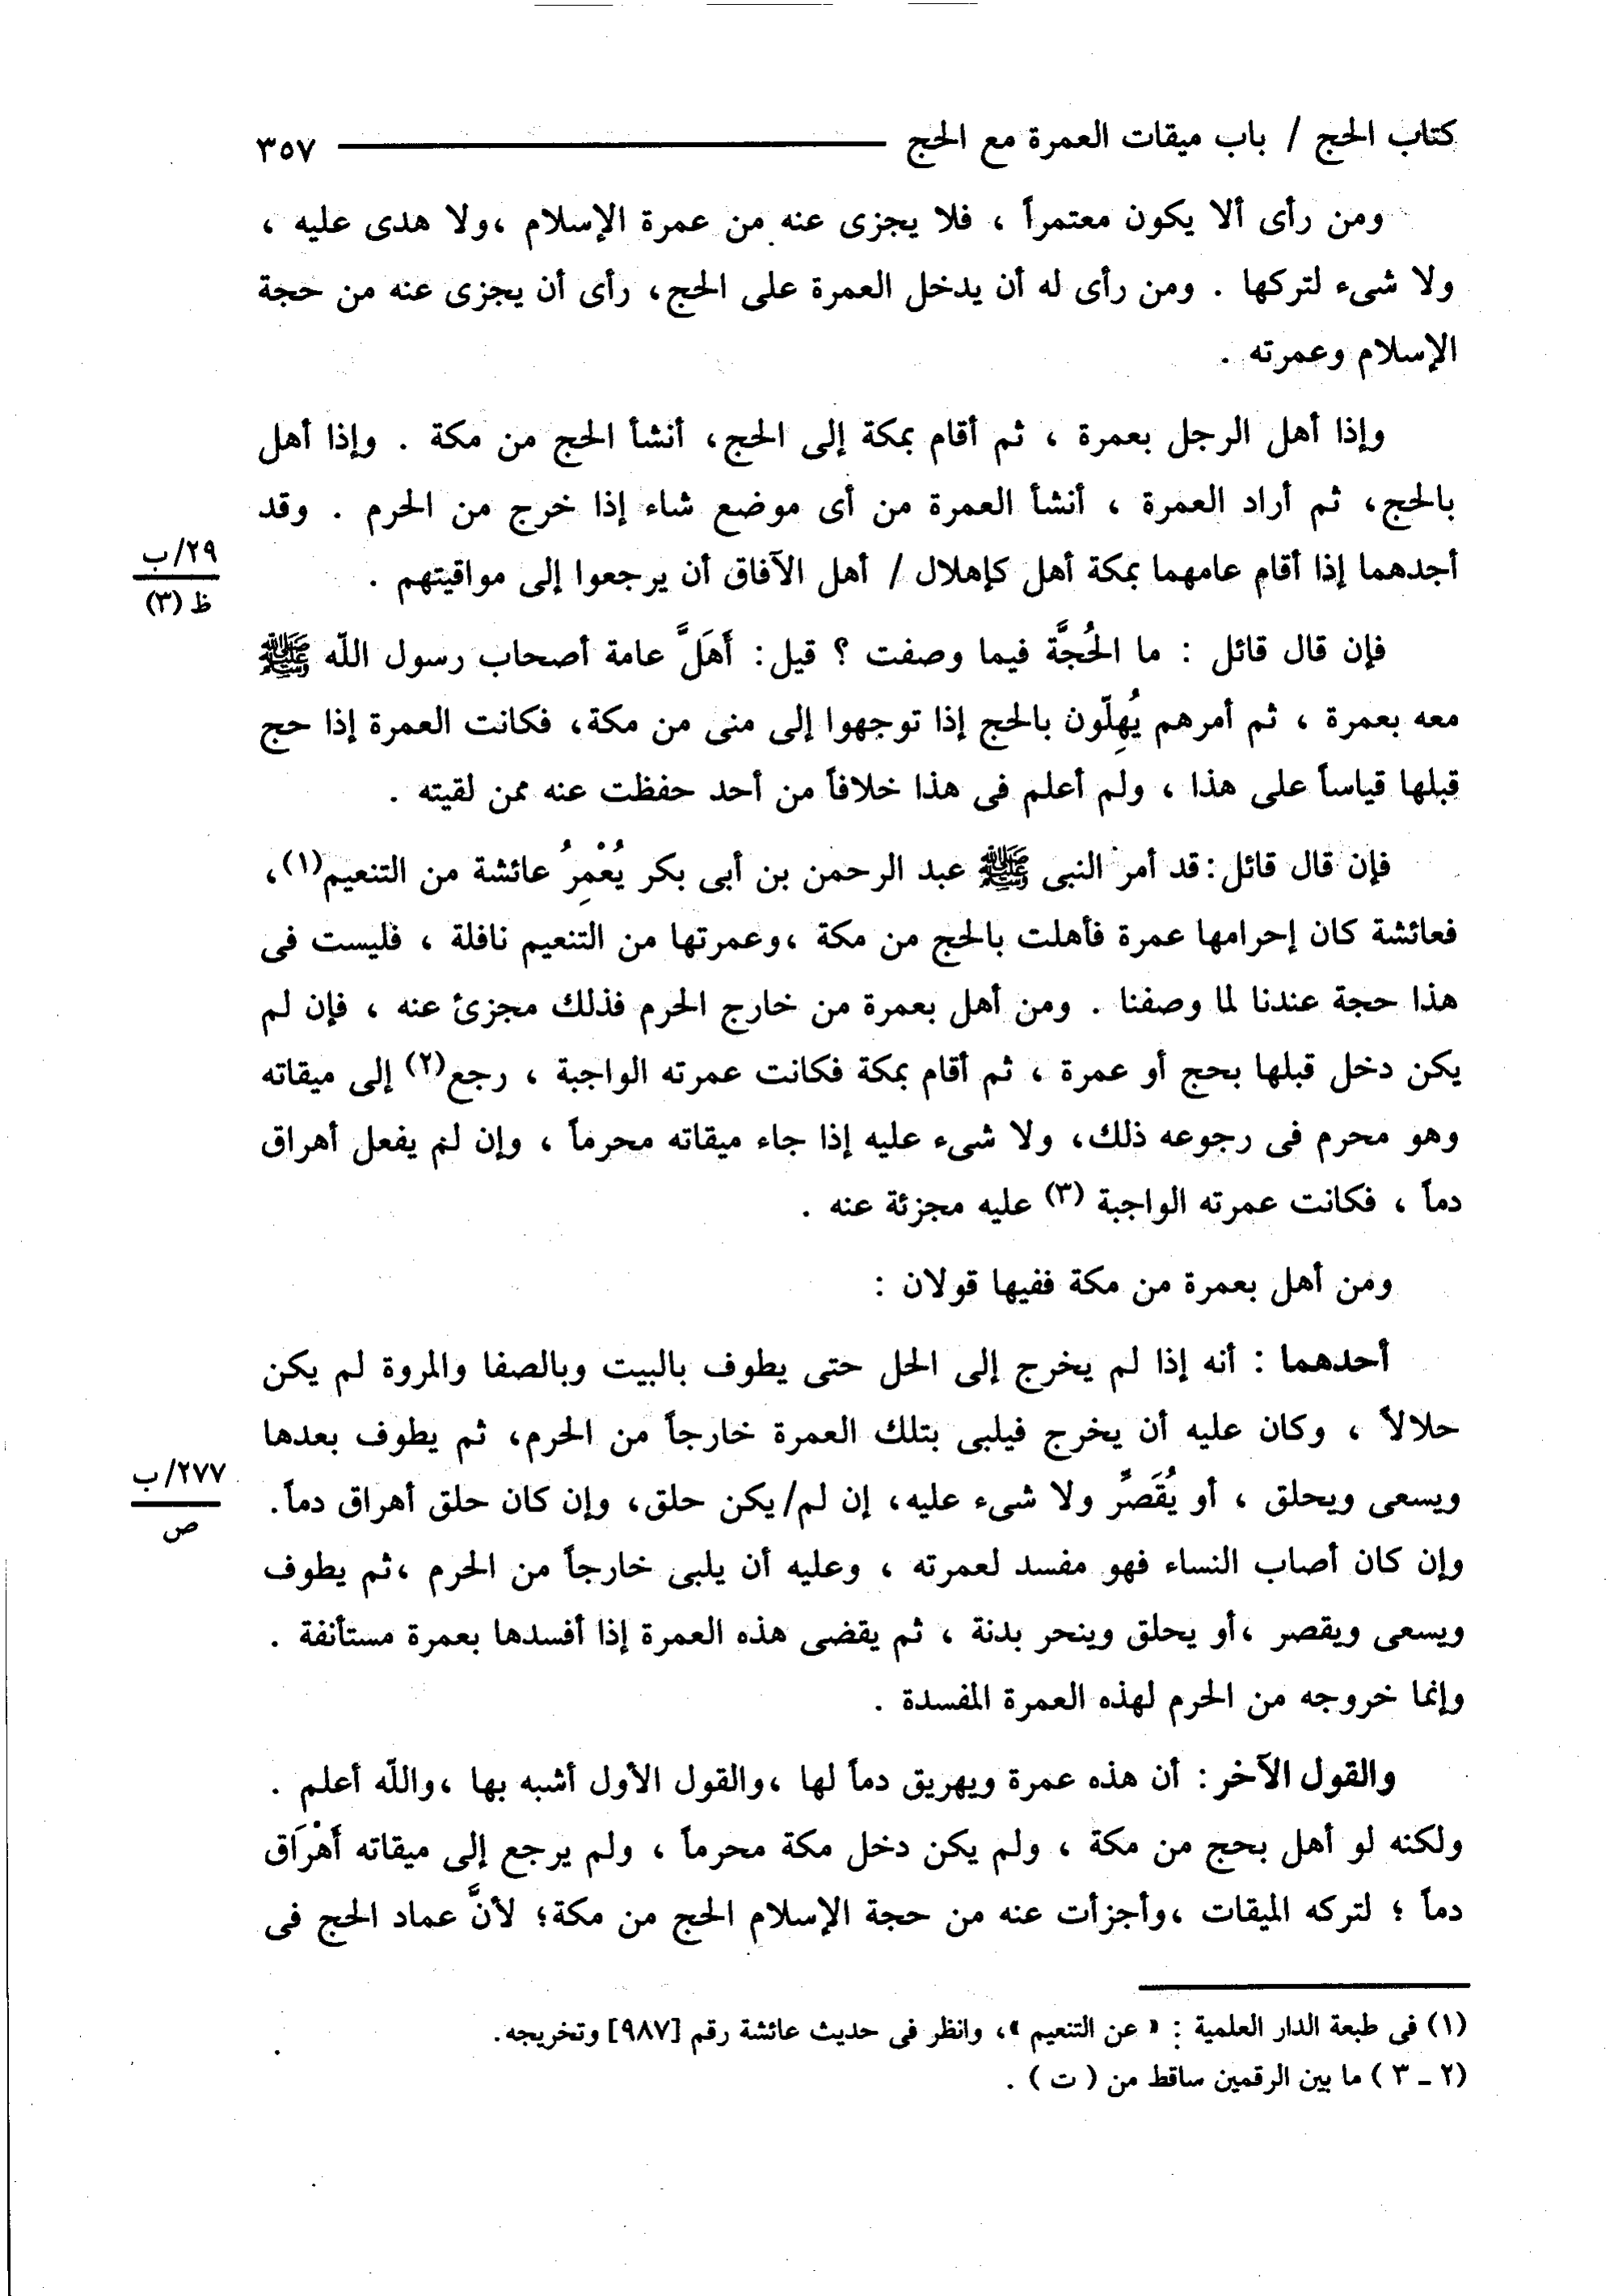 كتاب الحج / باب ميقات العمرة مع الحج ٣٥٧
ومن رأى ألا يكون معتمراً ، فلا يجزى عنه من عمرة الإسلام ،ولا هدى عليه ،
ولا شىء لتركها . ومن رأى له أن يدخل العمرة على الحج، رأى أن يجزى عنه من حجة
الإسلام وعمرته .
وإذا أهل الرجل بعمرة ، ثم أقام بمكة إلى الحج، أنشأ الحج من مكة . وإذا أهل
بالحج، ثم أراد العمرة ، أنشأ العمرة من أى موضع شاء إذا خرج من الحرم . وقد
أجدهما إذا أقام عامهما بمكة أهل كإهلال / أهل الآفاق أن يرجعوا إلى مواقيتهم .
٢٩/ب
ظ (٣)
فإن قال قائل : ما الحُجَّة فيما وصفت ؟ قيل: أَهَلَّ عامة أصحاب رسول اللّه ﷺ
معه بعمرة ، ثم أمرهم يُهِلّون بالحج إذا توجهوا إلى منى من مكة، فكانت العمرة إذا حج
قبلها قياساً على هذا ، ولم أعلم فى هذا خلافاً من أحد حفظت عنه ممن لقيته .
فإن قال قائل: قد أمر النبى ﷺ عبد الرحمن بن أبى بكر يُعْمِرُ عائشة من التنعيم(١)،
فعائشة كان إحرامها عمرة فأهلت بالحج من مكة ،وعمرتها من التنعيم نافلة ، فليست فى
هذا حجة عندنا لما وصفنا . ومن أهل بعمرة من خارج الحرم فذلك مجزئ عنه ، فإن لم
يكن دخل قبلها بحج أو عمرة ، ثم أقام بمكة فكانت عمرته الواجبة ، رجع(٢) إلى ميقاته
وهو محرم فى رجوعه ذلك، ولا شىء عليه إذا جاء ميقاته محرماً ، وإن لم يفعل أهراق
دماً ، فكانت عمرته الواجبة (٣) عليه مجزئة عنه .
ومن أهل بعمرة من مكة ففيها قولان :
أحدهما : أنه إذا لم يخرج إلى الحل حتى يطوف بالبيت وبالصفا والمروة لم يكن
حلالاً ، وكان عليه أن يخرج فيلبى بتلك العمرة خارجاً من الحرم، ثم يطوف بعدها
ويسعى ويحلق ، أو يُقَصِّر ولا شىء عليه، إن لم/يكن حلق، وإن كان حلق أهراق دماً.
٢٧٧/ب
ص
وإن كان أصاب النساء فهو مفسد لعمرته ، وعليه أن يلبى خارجاً من الحرم ،ثم يطوف
ويسعى ويقصر ،أو يحلق وينحر بدنة ، ثم يقضى هذه العمرة إذا أفسدها بعمرة مستأنفة .
وإنما خروجه من الحرم لهذه العمرة المفسدة .
والقول الآخر : أن هذه عمرة ويهريق دماً لها ،والقول الأول أشبه بها ،واللّه أعلم .
ولكنه لو أهل بحج من مكة ، ولم يكن دخل مكة محرماً ، ولم يرجع إلى ميقاته أَهْرَاق
دماً ؛ لتركه الميقات ،وأجزأت عنه من حجة الإسلام الحج من مكة؛ لأنَّ عماد الحج فى
(١) فى طبعة الدار العلمية : « عن التنعيم »، وانظر فى حديث عائشة رقم [٩٨٧] وتخريجه.
(٢ ـ ٣ ) ما بين الرقمين ساقط من ( ت ) .